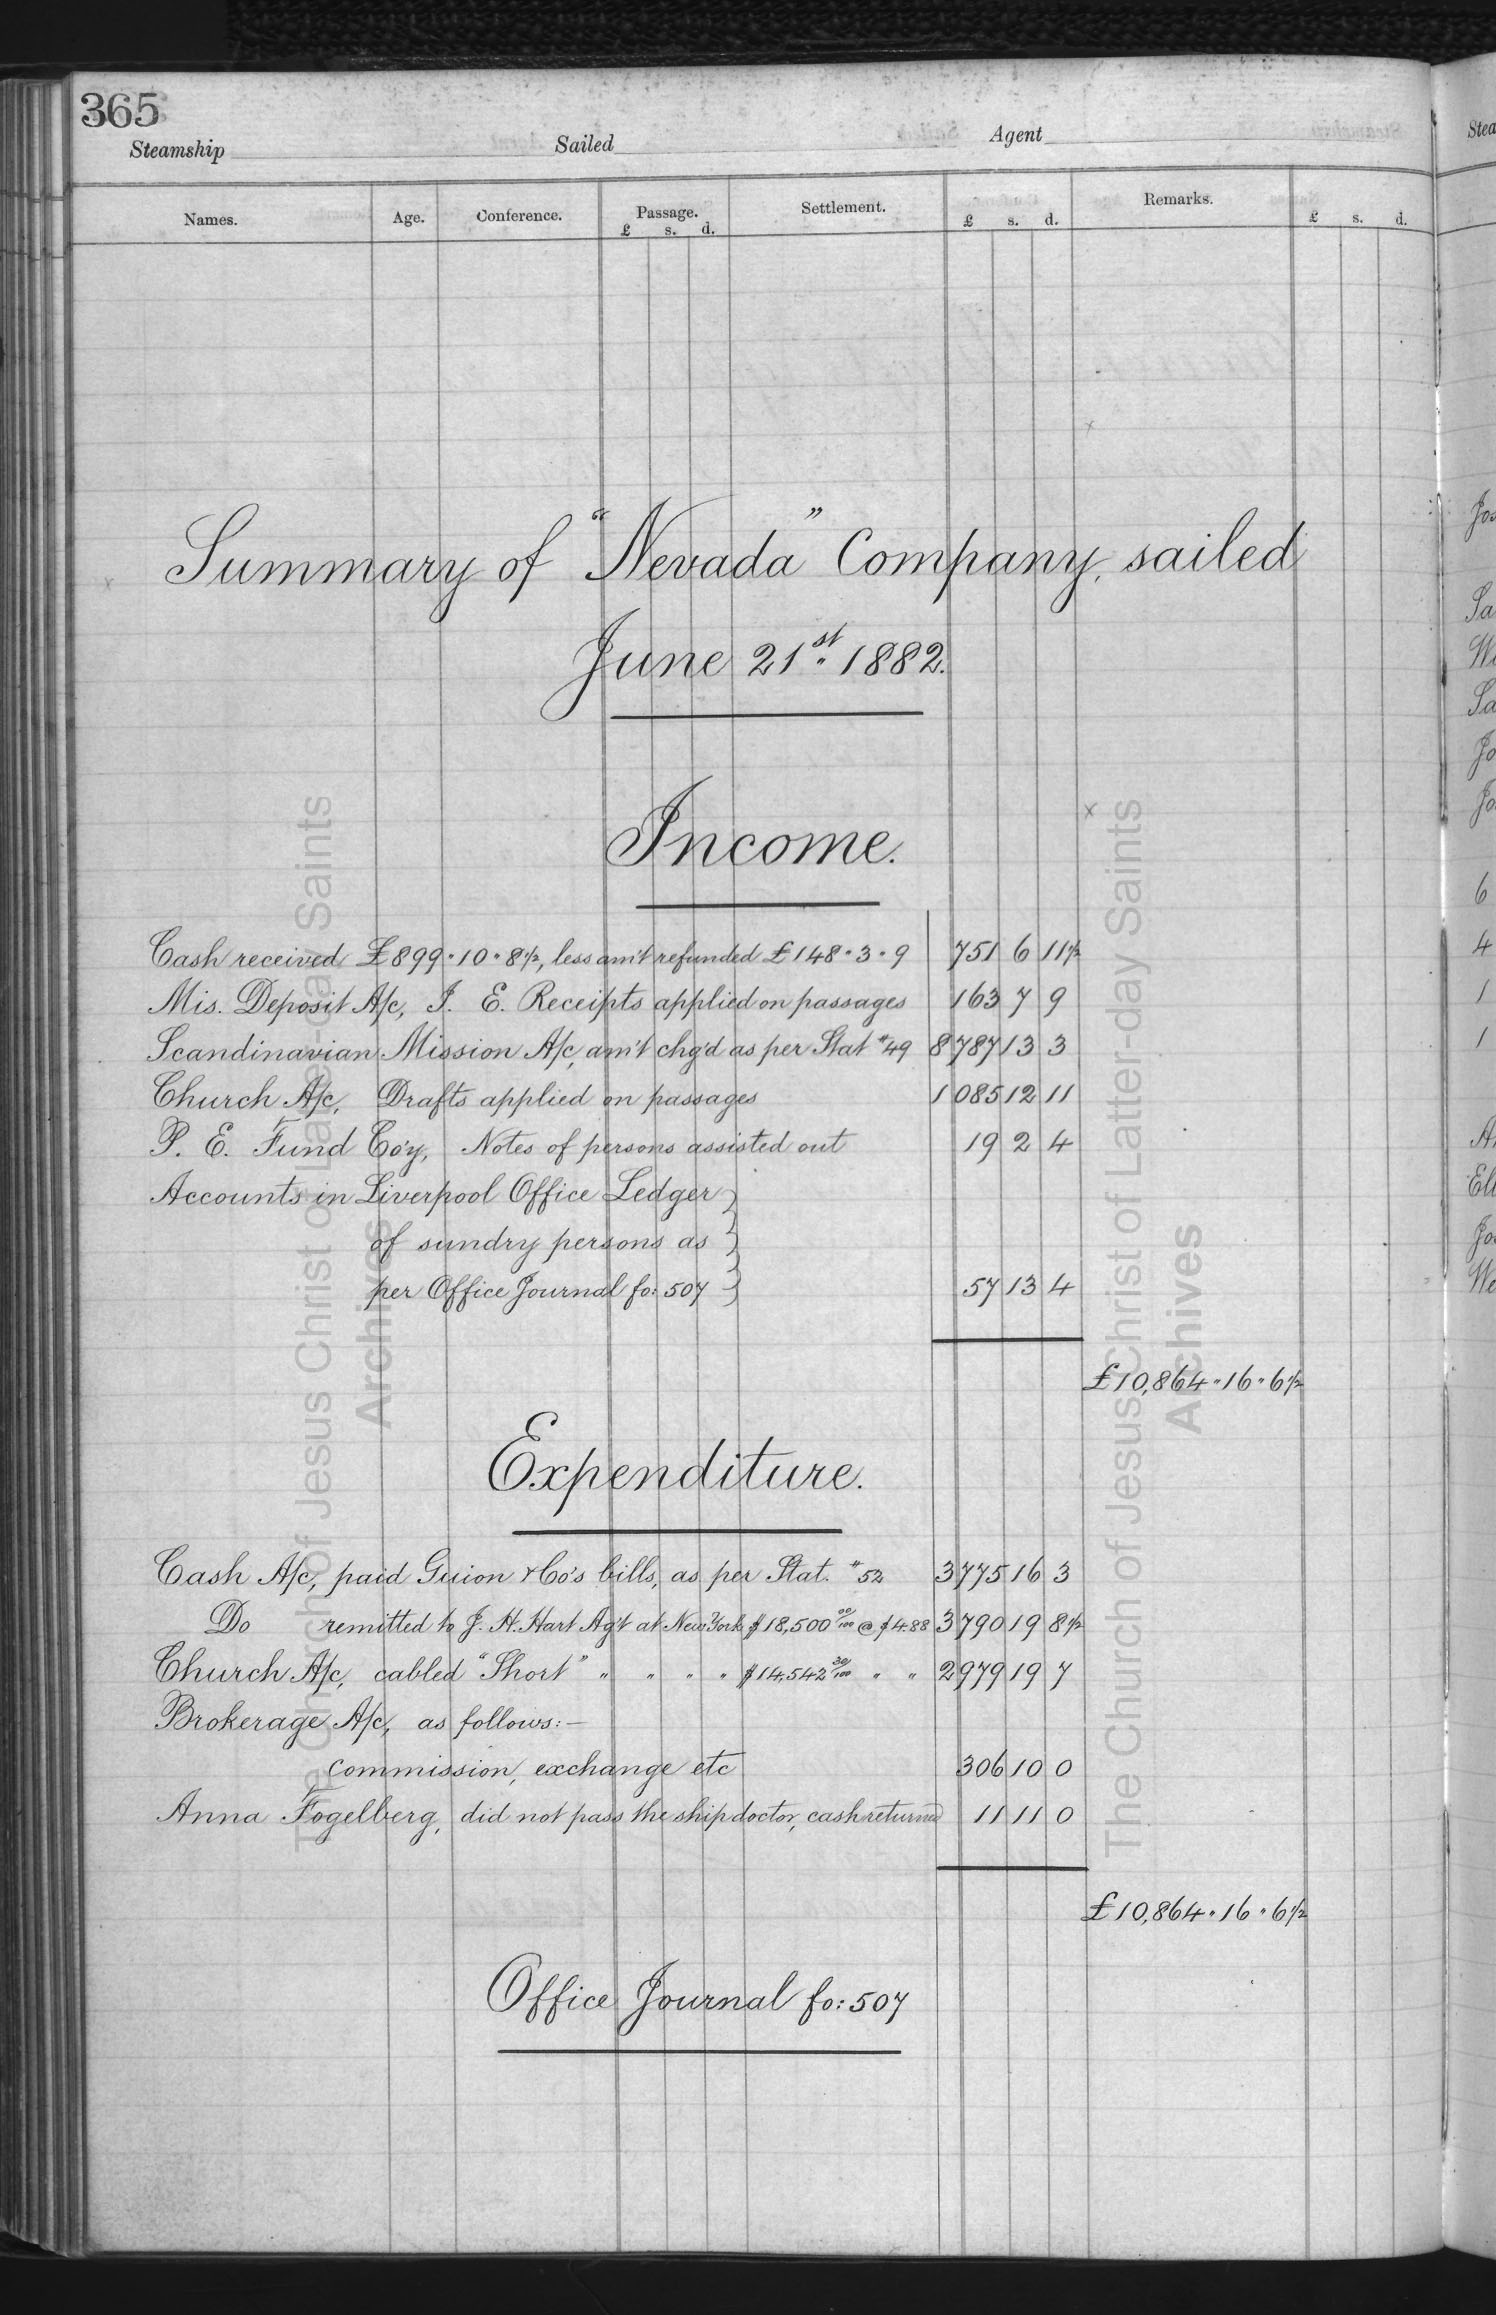 365
Steamship Sailed Agent
Names. Age. Conference. Passage. £ s. d. Settlement. £ s. d. Remarks. £ s. d.
Summary of "Nevada" Company, sailed
June 21st 1882.
Income.
Cash received £899 " 10 " 8½, less am't refunded £148 " 3 " 9 751 6 11½
Mis. Deposit A/c, I. E. Receipts applied on passages 163 7 9
Scandinavian Mission A/c, am't chg'd as per Stat #49 8787 13 3
Church A/c, Drafts applied on passages 1085 12 11
P. E. Fund Co'y, Notes of persons assisted out 19 2 4
Accounts in Liverpool Office Ledger
of sundry persons as
per Office Journal fo: 507 57 13 4
£10,864 " 16 " 6½
Expenditure.
Cash A/c, paid Guion & Co's bills, as per Stat. #52 3775 16 3
Do remitted to J. H. Hart Ag't at New York $18,500 00/100 @ $4.88 3790 19 8½
Church A/c, cabled "Short" " " " " $14,542 30/100 " " 2979 19 7
Brokerage A/c, as follows:—
commission, exchange etc 306 10 0
Anna Fogelberg, did not pass the ship doctor, cash returned 11 11 0
£10,864 " 16 " 6½
Office Journal fo: 507
The Church of Jesus Christ of Latter-day Saints
Archives
The Church of Jesus Christ of Latter-day Saints
Archives
Stea
Jos
Sa
We
Sa
Jo
Jo
6
4
1
1
Ell
Jo
We